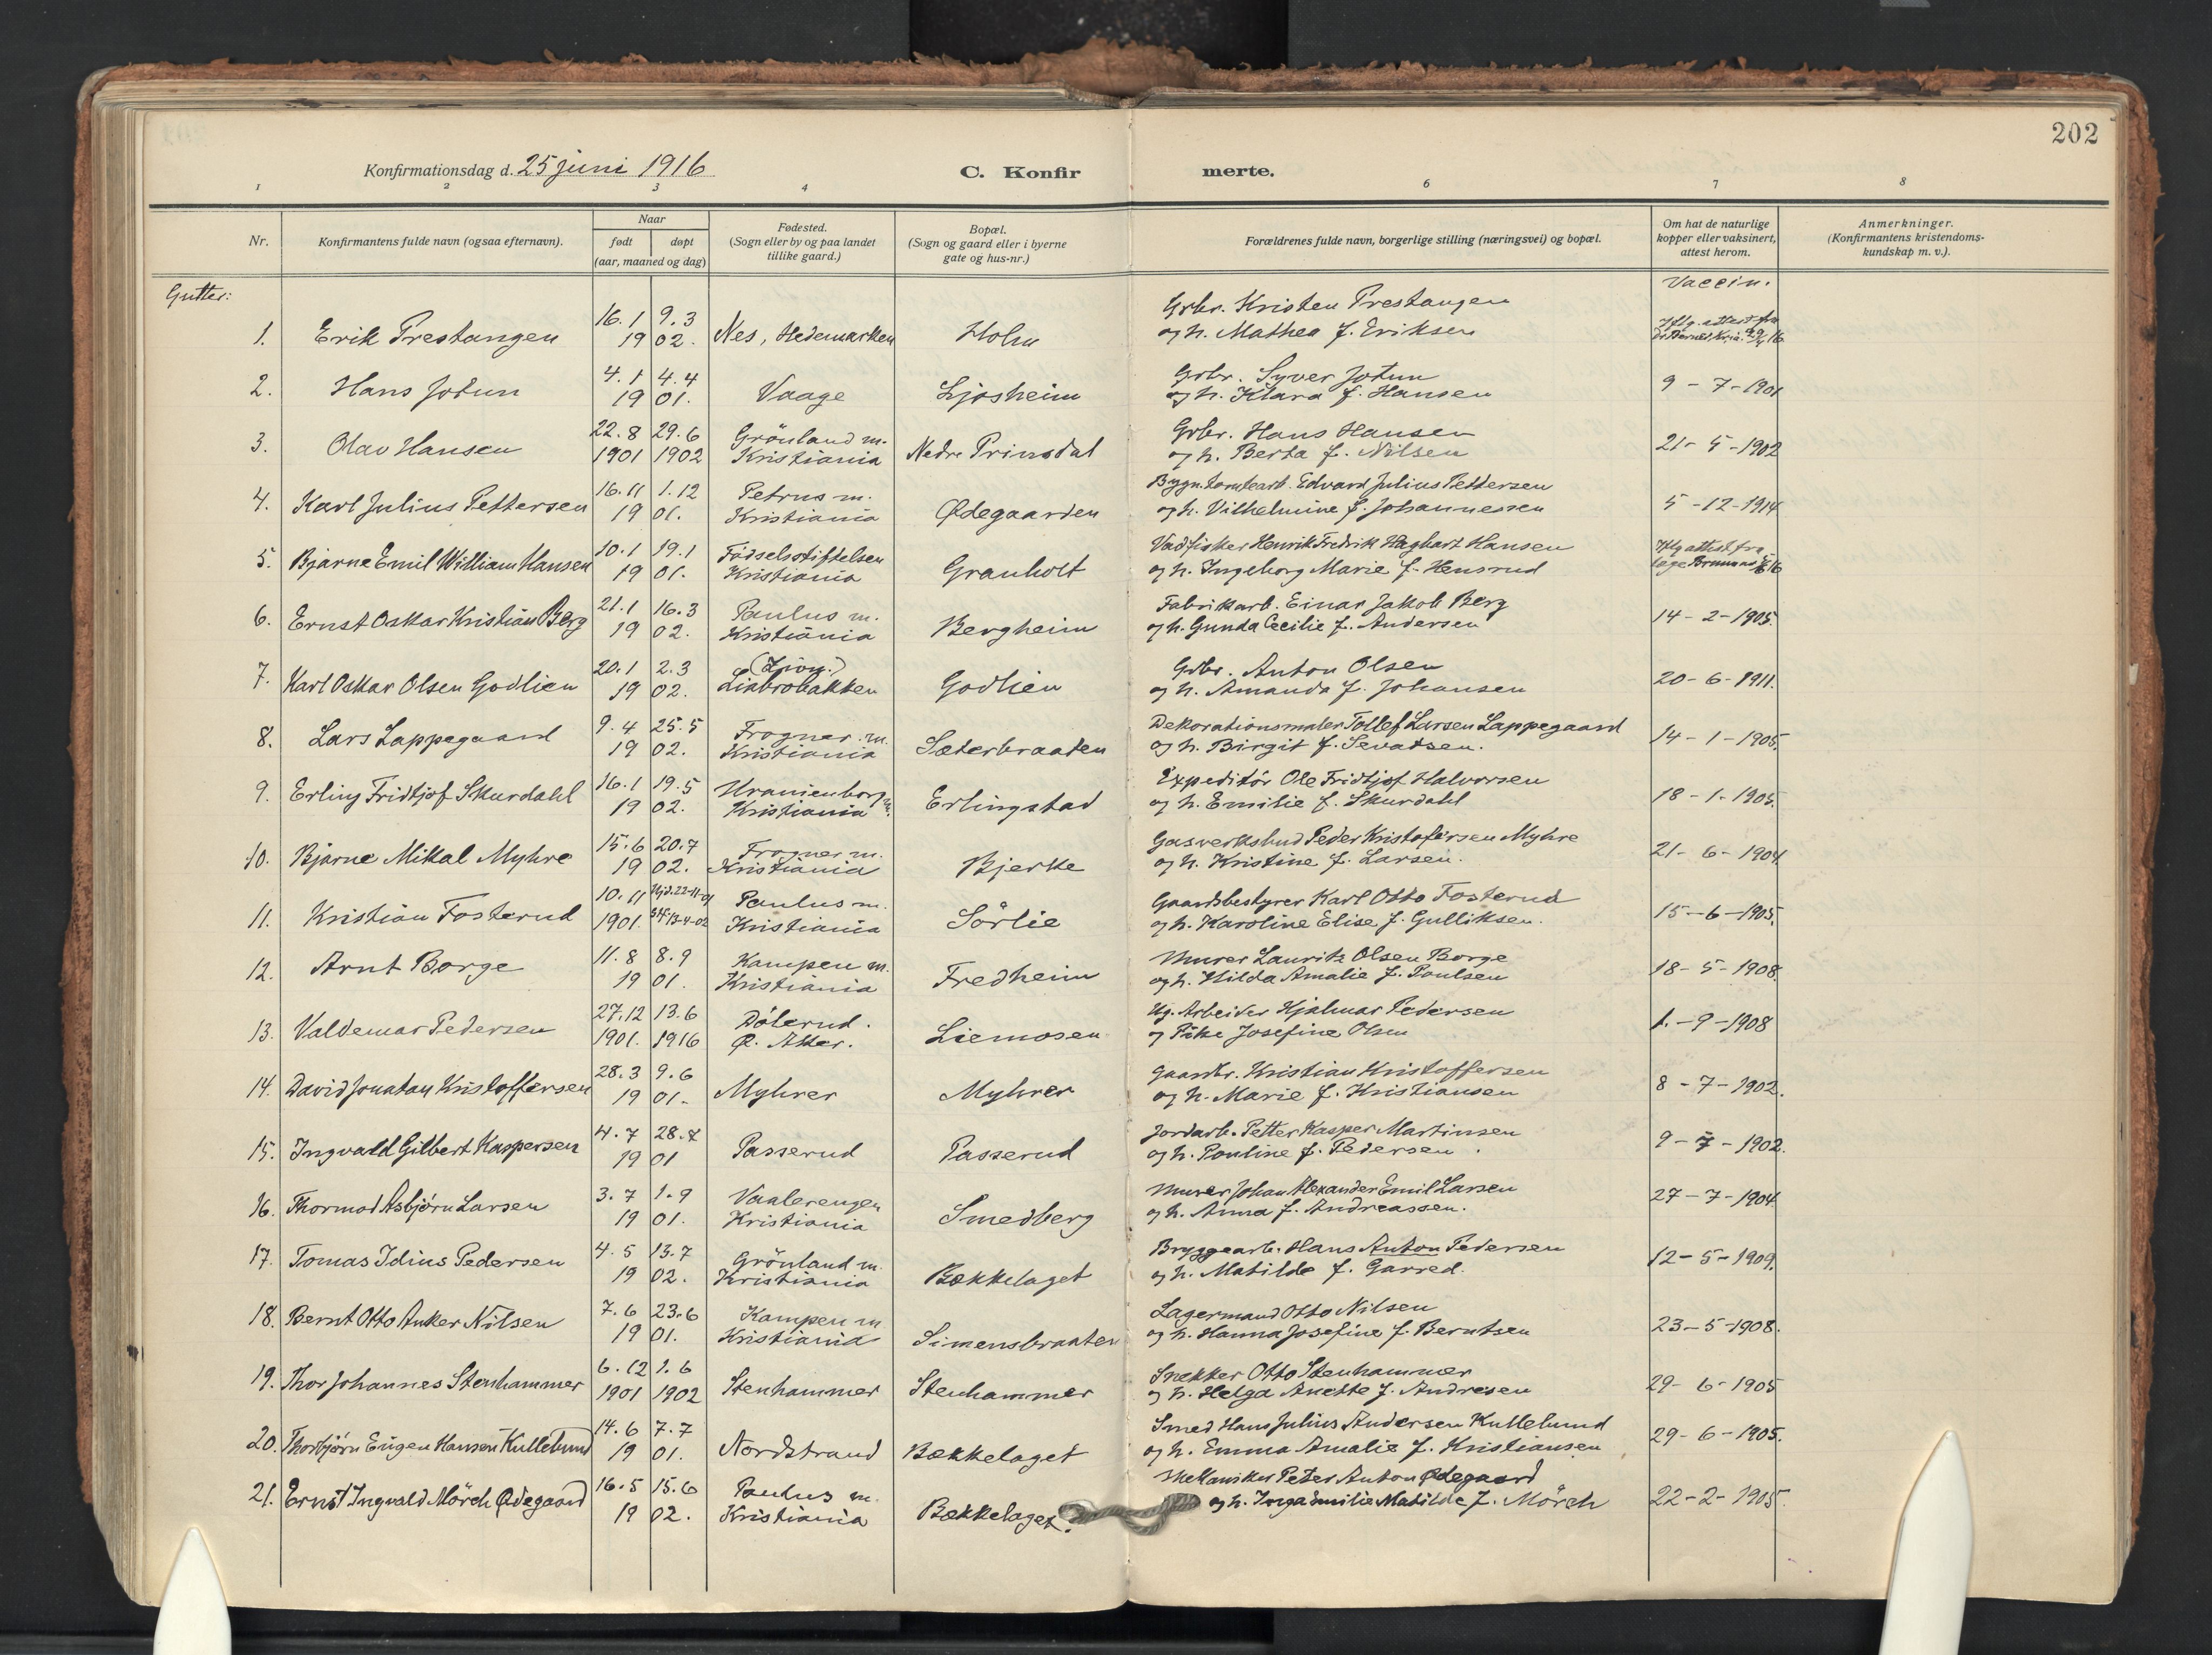 202
Konfirmationsdag d. 25 juni 1916
C. Konfirmerte.
1 2 3 4 6 7 8
Nr.
Konfirmantens fulde navn (ogsaa efternavn).
Naar
født døpt
(aar, maaned og dag)
Fødested.
(Sogn eller by og paa landet
tillike gaard.)
Bopæl.
(Sogn og gaard eller i byerne
gate og hus-nr.)
Forældrenes fulde navn, borgerlige stilling (næringsvei) og bopæl.
Om hat de naturlige
kopper eller vaksinert,
attest herom.
Anmerkninger.
(Konfirmantens kristendoms-
kundskap m. v.).
Gutter:
Vaccin.
1. Erik Prestangen 16.1 9.3 1902. Nes, Hedemarken Holm Grbr. Kristen Prestangen
og h. Mathea f. Eriksen
Iflg. attest fra
2. Hans Jotun 4.1 4.4 1901. Vaage Ljosheim Grbr. Syver Jotun 9-7-1901
og h. Klara f. Hansen
3. Olav Hansen 22.8 1901 29.6 1902 Grönland m. Kristiania Nedre Prinsdal Grbr. Hans Hansen 21-5-1902
og h. Berta f. Nilsen
4. Karl Julius Pettersen 16.11 1.12 1901. Petrus m. Kristiania Ødegaarden Edvard Julius Pettersen 5-12-1914
og h. Vilhelmine f. Johannessen
5. Bjarne Emil William Hansen 10.1 19.1 1901. Födselsstiftelsen Kristiania Granholt Vadfisker Henrik Fredrik Haghart Hansen Iflg attest fra
og h. Ingeborg Marie f. Hensrud læge
6. Ernst Oskar Kristian Berg 21.1 16.3 1902. Paulus m. Kristiania Bergheim Fabrikarb. Einar Jakob Berg 14-2-1905.
og h. Gunda Cecilie f. Andersen
7. Karl Oskar Olsen Godlien 20.1 2.3 1902. (Zion.) Liabrobakken Godlien Grbr. Anton Olsen 20-6-1911.
og h. Amanda f. Johansen
8. Lars Lappegaard 9.4 25.5 1902. Frogner m. Kristiania Sæterbraaten Dekorationsmaler Tollef Larsen Lappegaard 14-1-1905.
og h. Birgit f. Sevatsen.
9. Erling Fridtjof Skurdahl 16.1 19.5 1902. Uranienborg m. Kristiania Erlingstad Expeditör Ole Fridtjof Halvorsen 18-1-1905.
og h. Emilie f. Skurdahl
10. Bjarne Mikal Myhre 15.6 20.7 1902. Frogner m. Kristiania Bjerke Gasverksbud Peder Kristofersen Myhre 21-6-1904.
og h. Kristine f. Larsen.
11. Kristian Fosterud 10.11 1901. Hjd. 22-11-01 Stf 13-4-02 Paulus m. Kristiania Sörlie Gaardsbestyrer Karl Otto Fosterud 15-6-1905.
og h. Karoline Elise f. Gulliksen.
12. Arnt Borge 11.8 8.9 1901. Kampen m. Kristiania Fredheim Murer Lauritz Olsen Borge 18-5-1908.
og h. Hilda Amalie f. Poulsen
13. Valdemar Pedersen 27.12 1901. 13.6 1916 Dölerud. Ø. Aker. Liemosen Ug. Arbeider Hjalmar Pedersen 1.-9-1908
og Pike Josefine Olsen
14. David Jonatan Kristoffersen 28.3 9.6 1901. Myhrer Myhrer Gaardbr. Kristian Kristoffersen 8-7-1902.
og h. Marie f. Kristiansen
15. Ingvald Gilbert Kaspersen 4.7 28.7 1901 Passerud Passerud Jordarb. Petter Kasper Martinsen 9-7-1902.
og h. Pouline f. Pedersen.
16. Thormod Asbjörn Larsen 3.7 1.9 1901. Vaalerengen Kristiania Smedberg Murer Johan Alexander Emil Larsen 27-7-1904.
og h. Anna f. Andreassen.
17. Tomas Idius Pedersen 4.5 13.7 1902. Grönland m. Kristiania Bækkelaget Bryggearb. Hans Anton Pedersen 12-5-1909.
og h. Matilde f. Garred.
18. Bernt Otto Anker Nilsen 7.6 23.6 1901. Kampen m Kristiania Simensbraaten Lagermand Otto Nilsen 23-5-1908.
og h. Hanna Josefine f. Berntsen
19. Thor Johannes Stenhammer 6.12 1901 1.6 1902 Stenhammer Stenhammer Snekker Otto Stenhammer 29-6-1905
og h. Helga Anette f. Andresen
20. Thorbjörn Eugen Hansen Kullebund 14.6 7.7 1901. Nordstrand Bækkelaget Smed Hans Julius Andersen Kullebund 29-6-1905.
og h. Emma Amalie f. Kristiansen
21. Ernst Ingvald Mörch Ødegaard 16.5 15.6 1902. Paulus m. Kristiania Bækkelaget. Mekaniker Peter Anton Ødegaard 22-2-1905.
og h. Inga Emilie Matilde f. Mörch